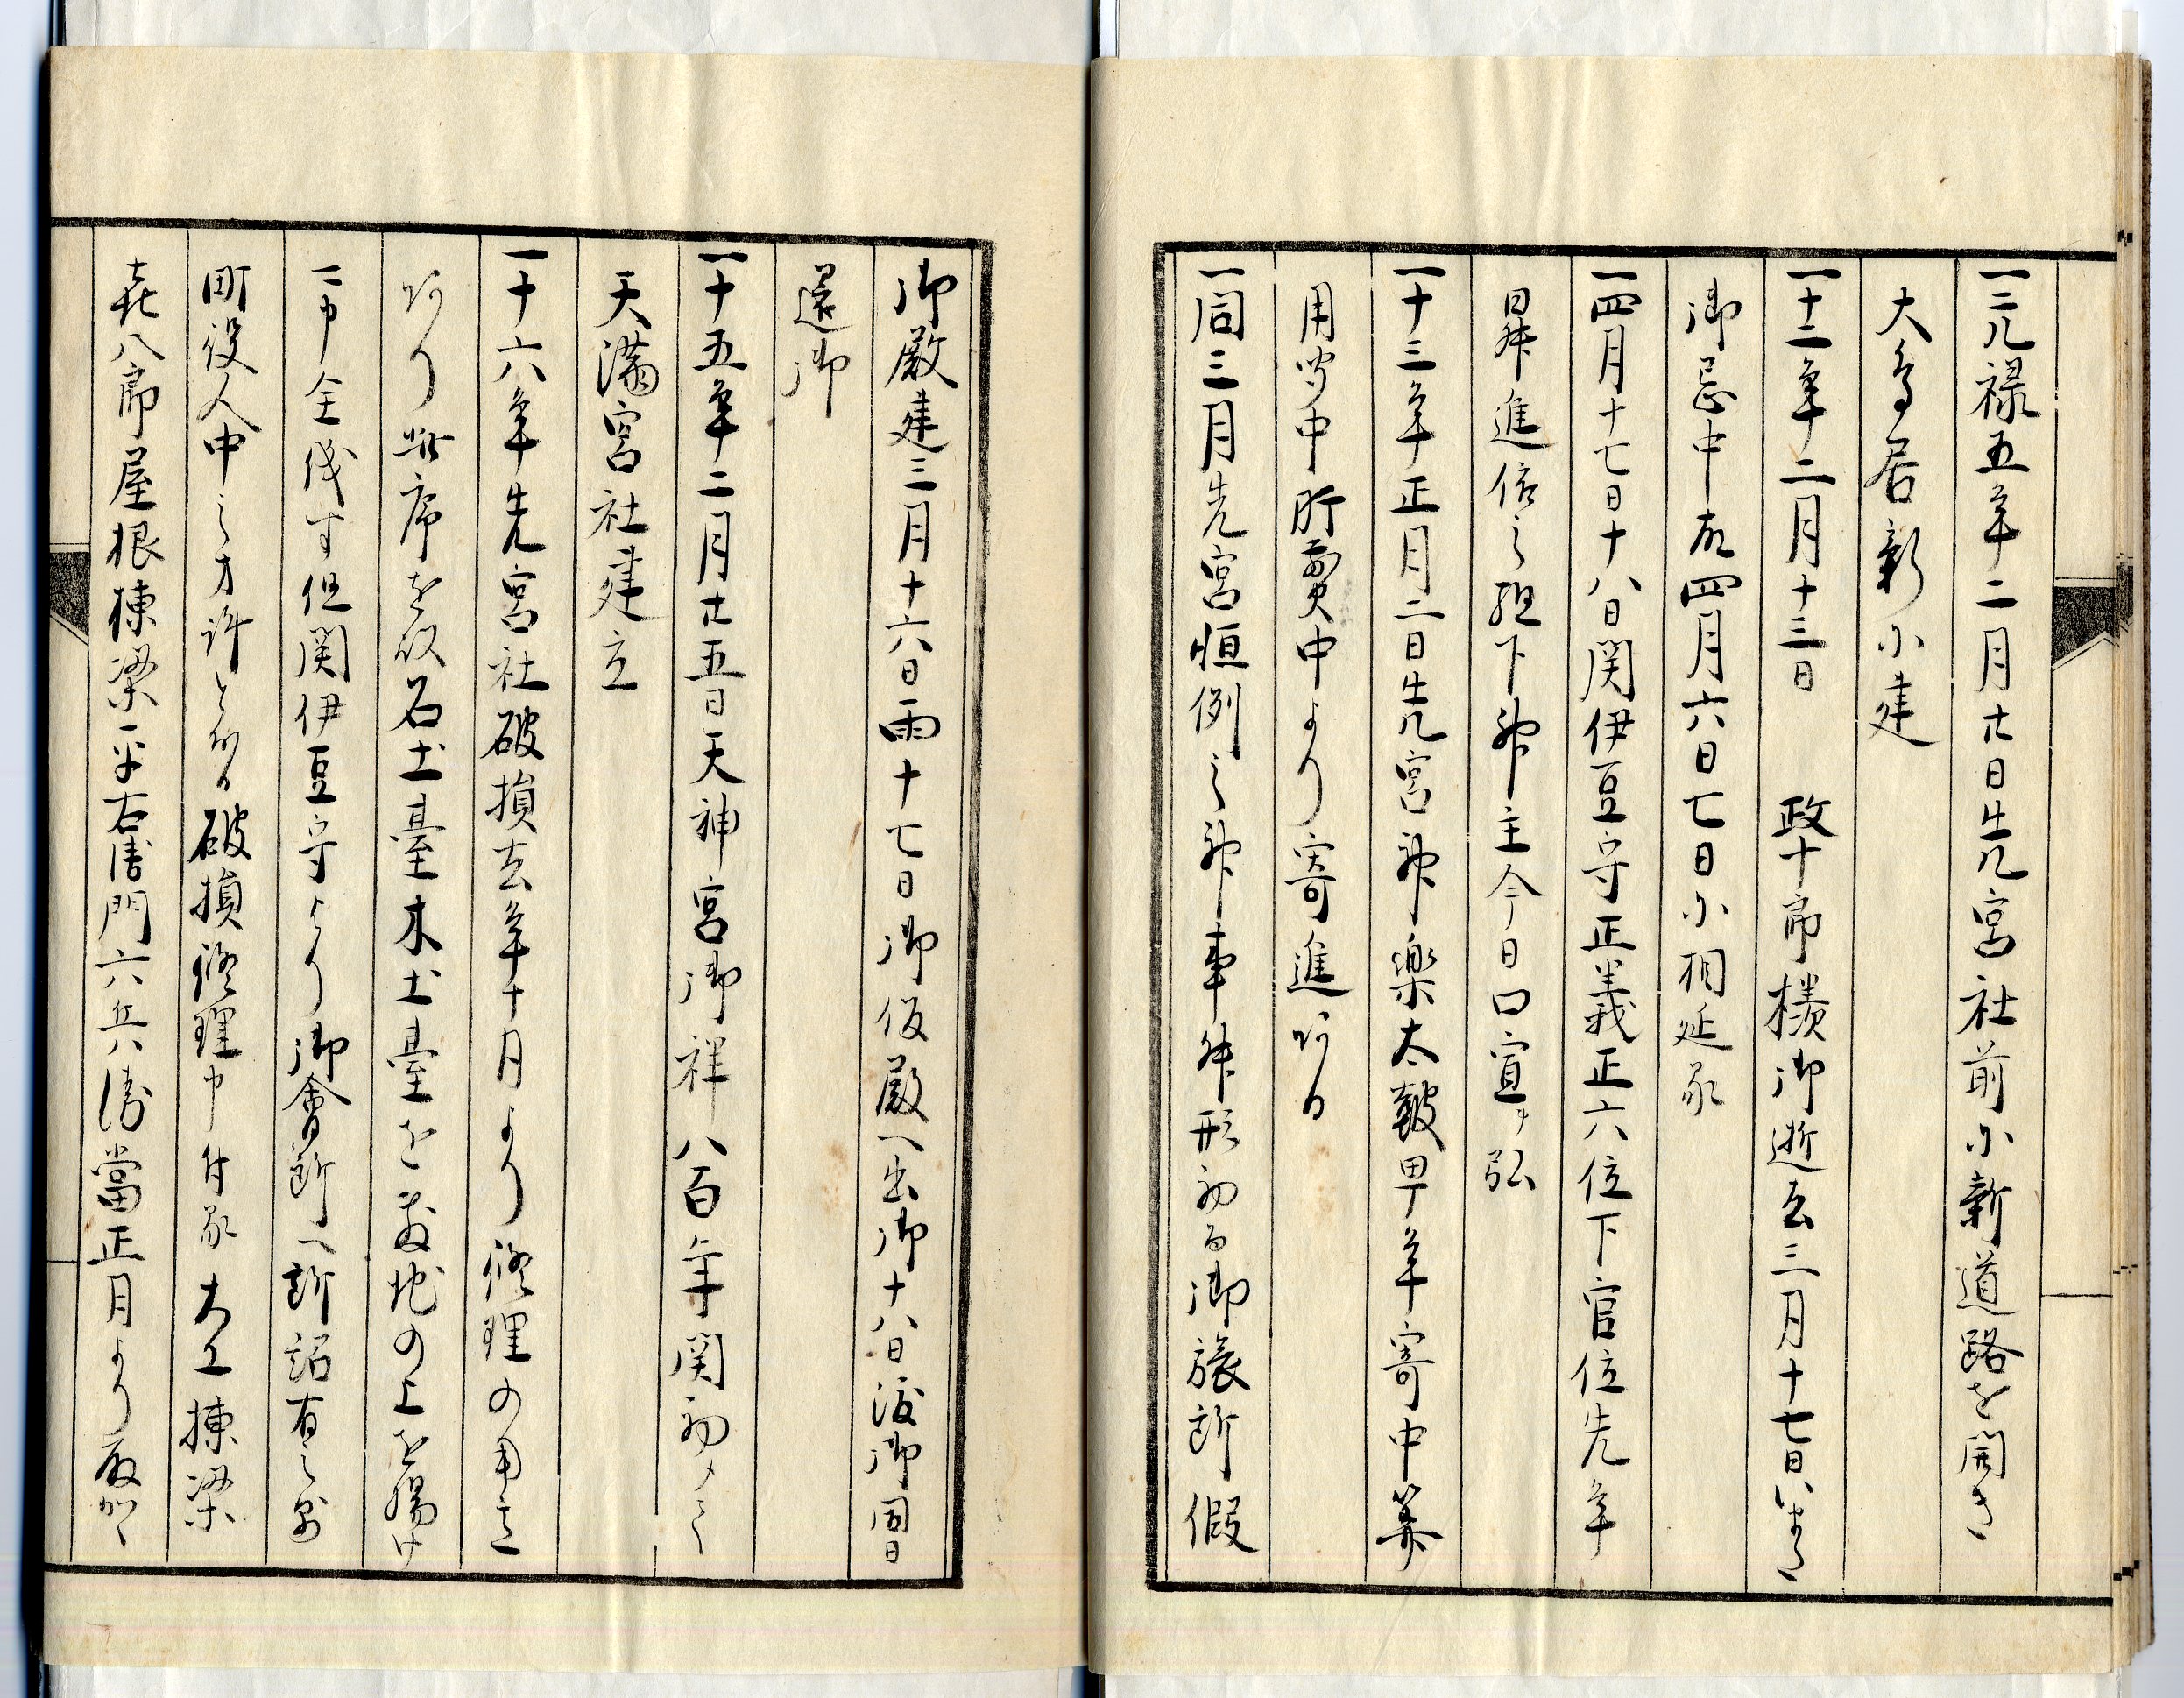 一元禄五年二月廿日先宮社前ニ新道路を開き
大鳥居新ニ建
一十二年二月十三日　政十郎様御逝去三月十七日ハ
御忌中故四月六日七日ニ相延候
一四月十七日十八日関伊豆守正義正六位下官位先年
昇進依之祖下神主今日口宣ヲ弘
一十三年正月二日先宮神楽太皷甲年寄中并
用聞中肝煎中より寄進有
一同三月先宮恒例之神事舛形初而御旅所假
御殿建三月十六日雨十七日御仮殿へ出御十八日渡御同日
還御
一十五年二月廿五日天神宮御祥八百年関初メ而
天満宮社建立
一十六年先宮社破損去年十月より修理の用意
有り此序を以石土臺木土臺を敷地の上を揚け
可申金銭等但関伊豆守より御會所へ訴詔有之
町役人中之方許とかる破損修理申付候大工棟梁
㐂八郎屋根棟梁平右衛門六兵衛當正月より取かゝ